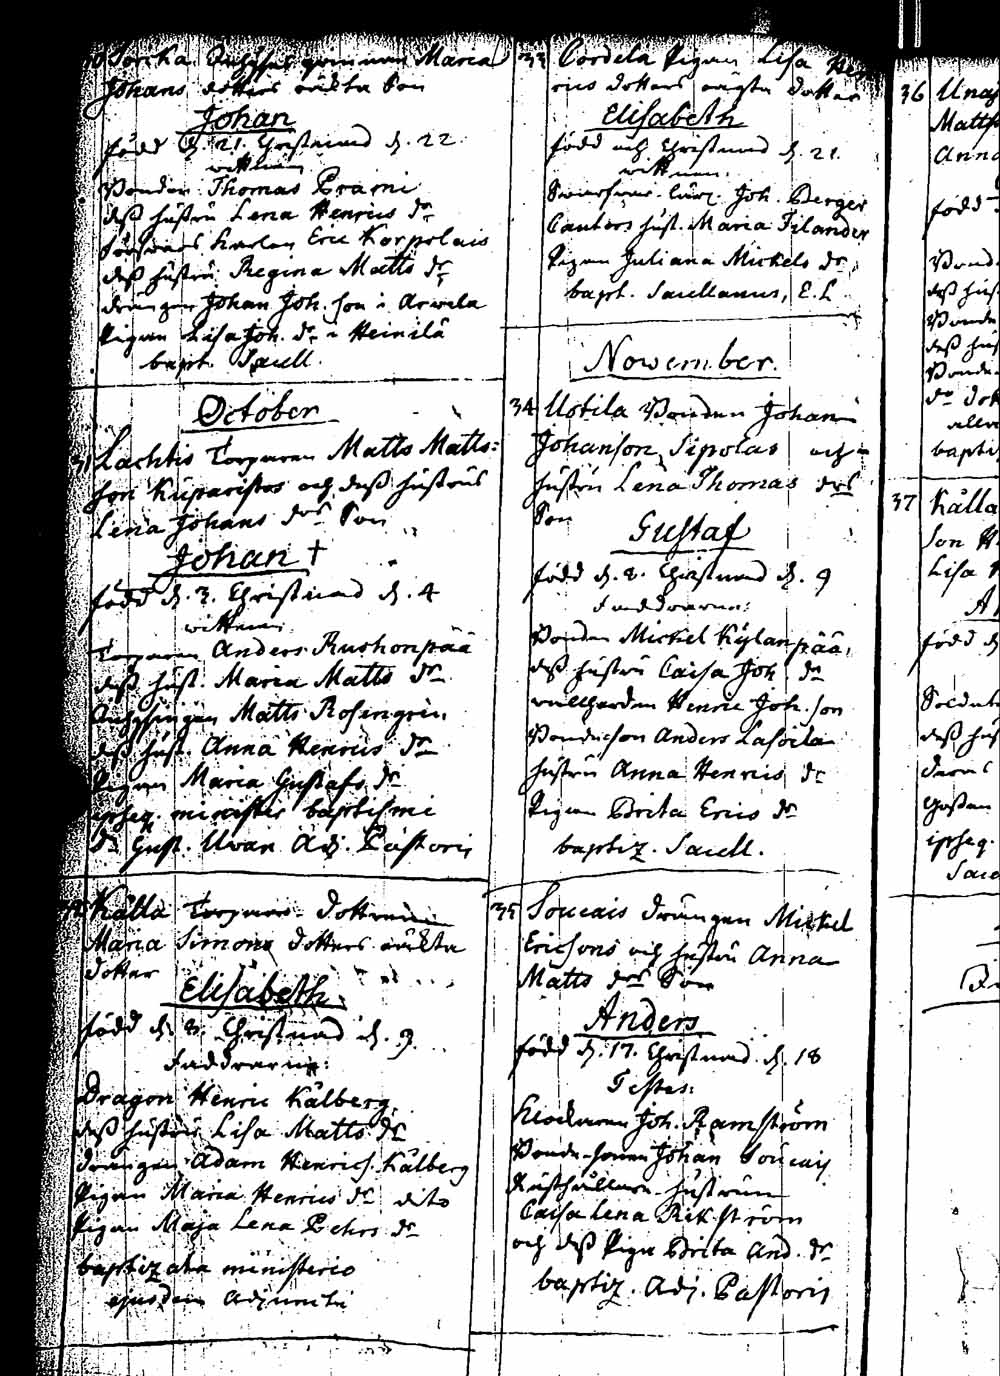 30 Sorcka qvinnan Maria
Johans dotters oäkta Son
Johan
född d. 21. Christnad d. 22
wittnen
Bonden Thomas Prami
deß hustru Lena Henrics dr
Eric Korpolais
deß hustru Regina Matts dr
drängen Johan Joh. son i Arwela
Pigan Lisa Joh. dr i Heinilä
bapt. Sacell.
October
31 Lachtis Torparen Matts Matts-
son Kuparistos och deß hustrus
Lena Johans drs Son
Johan †
född d. 3. Christnad d. 4
wittnen
Torparen Anders Ruohonpää
deß hust. Maria Matts dr
Matts Rosengren
deß hust. Anna Henrics dr
Pigan Maria Gustafs dr
ipseq. minister baptismi
Dn Gust. Uvan Adj. Pastoris
32 Källa Torpare-Dottren
Maria Simons dotters oäkta
dotter
Elisabeth
född d. 8. Christnad d. 9.
Faddrarne:
Dragon Henric Kälberg
deß hustru Lisa Matts dr
drängen Adam Henrics. Kälberg
Pigan Maria Henrics dr dito
Pigan Maja Lena Pehrs dr
baptizata ministerio
ejusdem Adjuncti
33 Cordela Pigan Lisa Hen
rics dotters oägta dotter
Elisabeth
född och Christnad d. 21.
wittnen.
Joh. Berger
Cantors hust. Maria Filander
Pigan Juliana Mickels dr
bapt. Sacellanus, E. L.
November.
34 Uotila Bonden Johan
Johanson Sipolas och
hustru Lena Thomas drs
Son
Gustaf
född d. 8. Christnad d. 9
Faddrarne:
Bonden Mickel Kylänpää,
deß hustru Caisa Joh. dr
Henric Joh. son
Bondeson Anders Lassila
hustru Anna Henrics dr
Pigan Brita Erics dr
baptiz. Sacell.
35 Soucais drängen Mickel
Ericsons och hustru Anna
Matts drs Son
Anders
född d. 17. Christnad d. 18
Testes:
Klockaren Joh. Ramström
Bonde-sonen Johan Soucais
Rusthållare hustrun
Caisa Lena Rikström
och deß Piga Brita And. dr
baptiz. Adj. Pastoris
36
Matts
Anna
född
deß hus
deß hus
baptiz
37 Källa
son H
Lisa
A
född d
Soldat
deß hus
ipseq.
Sace